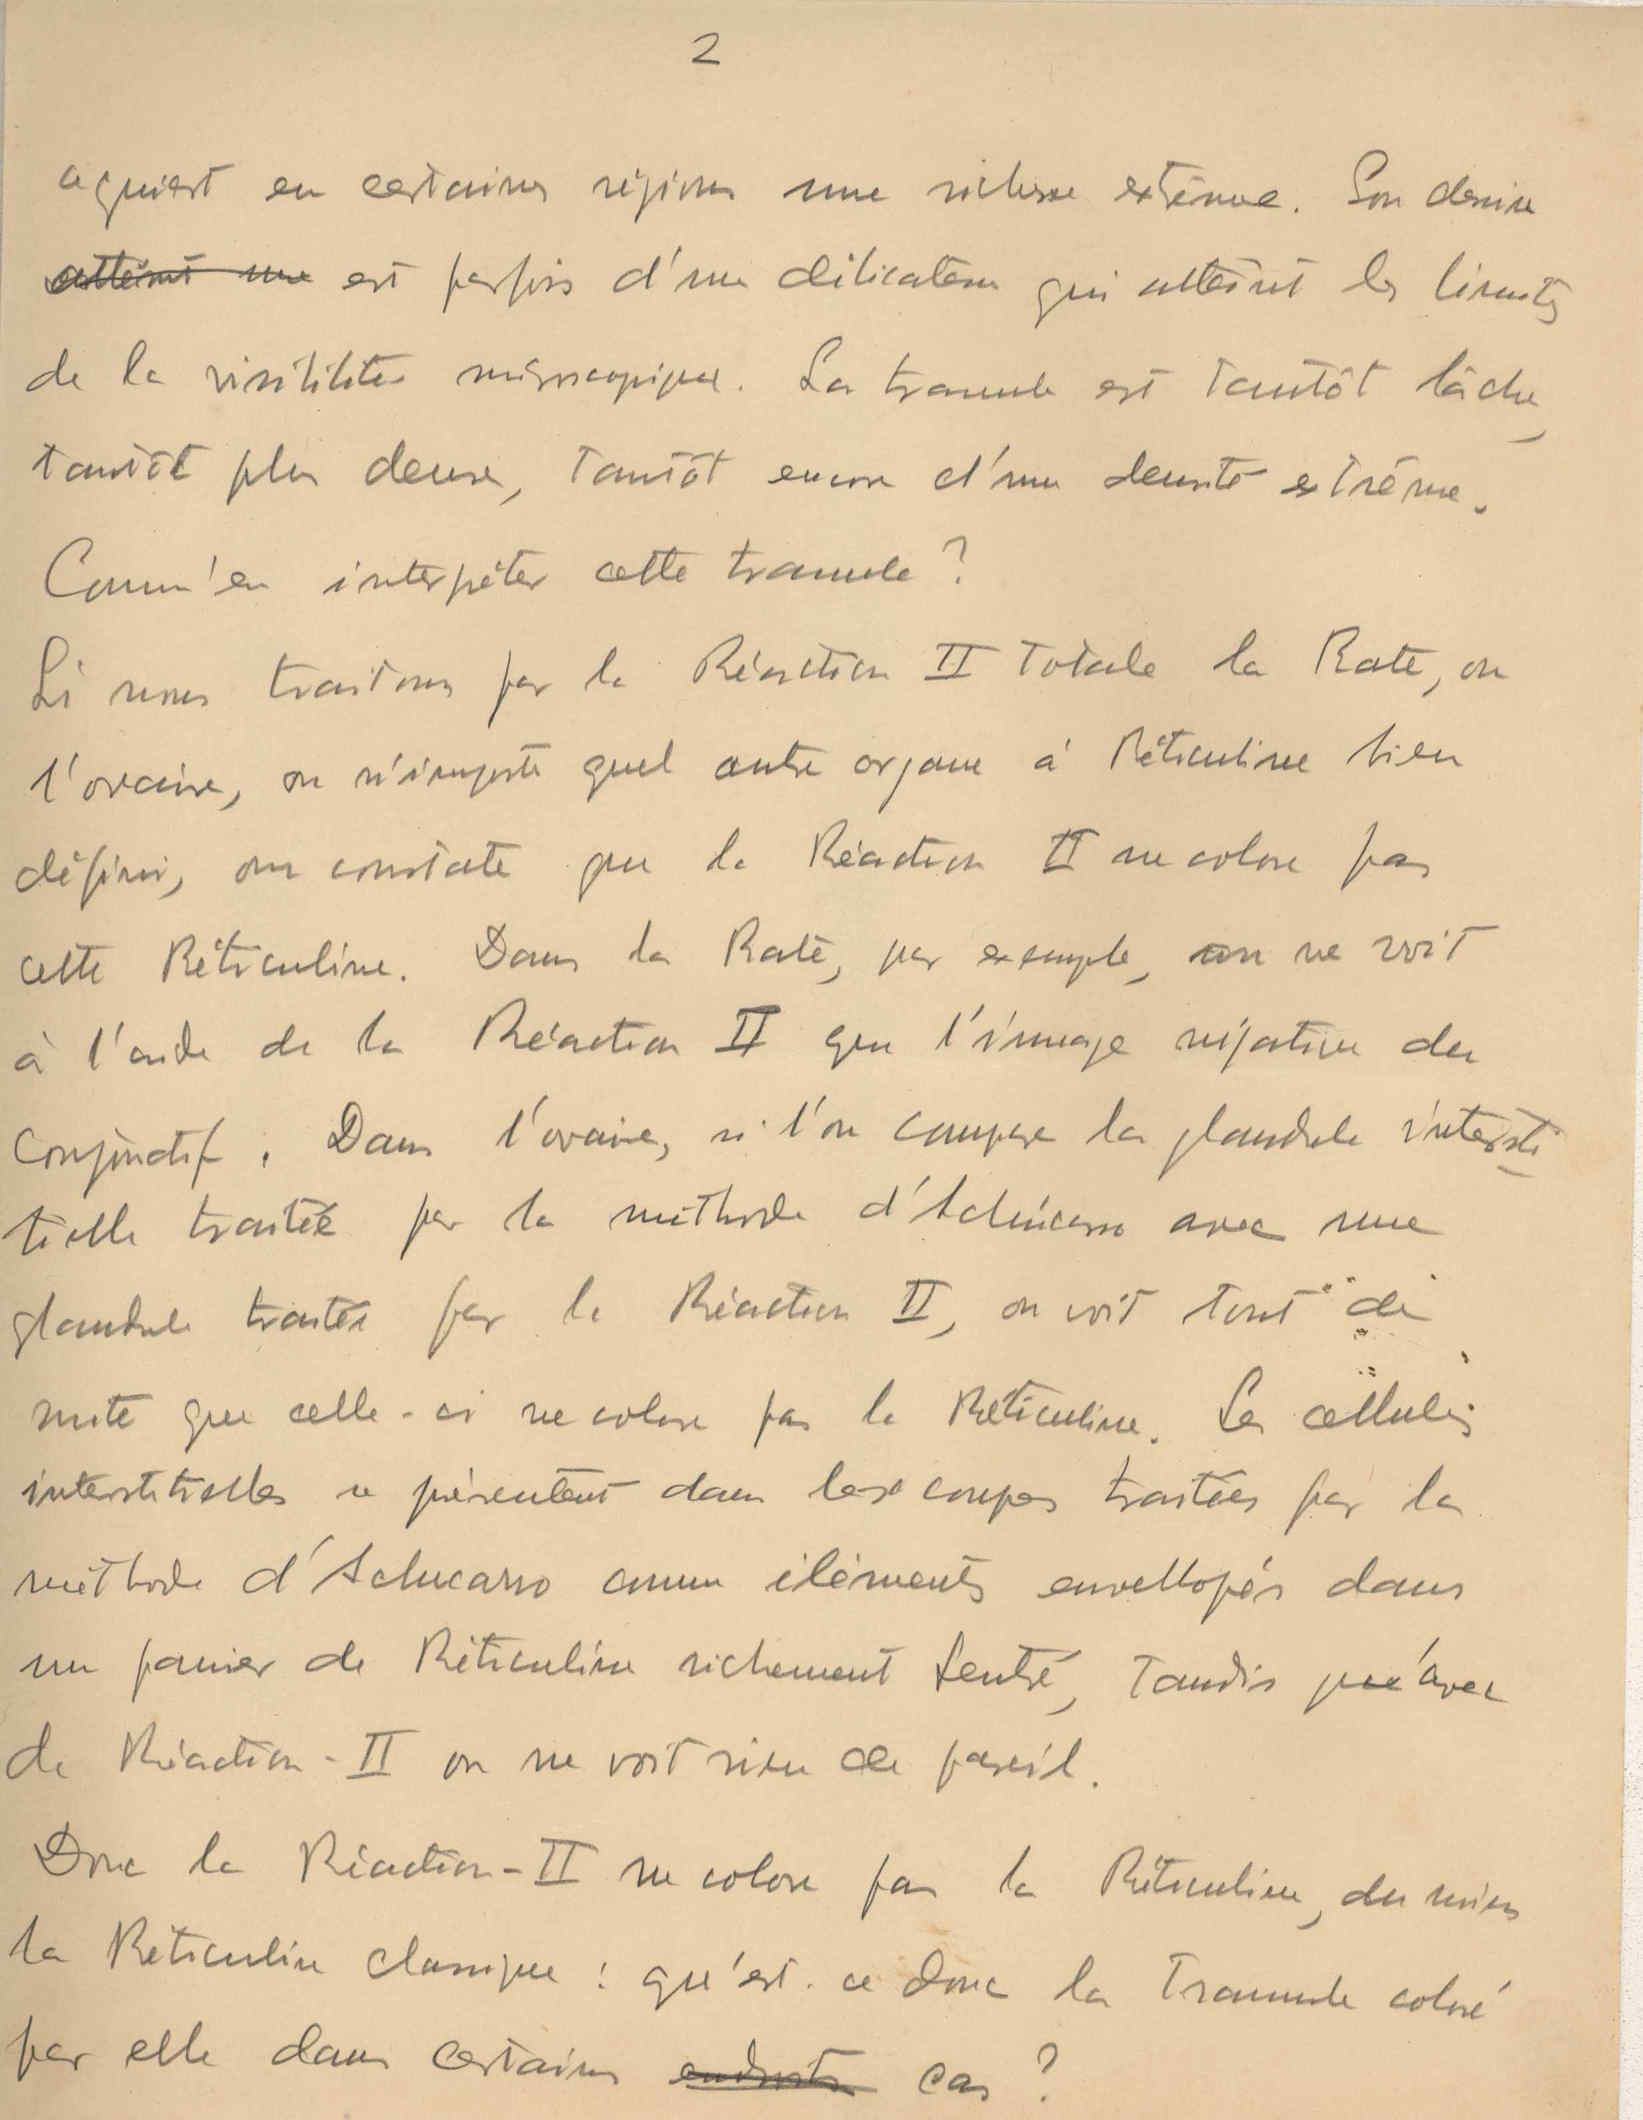 2
aquiert en certaines régions une richesse extême. Son dessin
atteint une est parfois d'une délicatesse qui atteint les limites
de la visibilité microscopique. La tramule est tantôt lâche,
tantôt plus dense, tantôt encore d'une densité extrême.
Comm'en interpéter cette tramule?
Si nous traitons par la Réaction II Totale la Rate, ou
l'ovaire, ou n'importe quel autre organe à Réticuline bien
défini, on constate que la Réaction II ne colore pas
cette Réticuline. Dans la Rate, par exemple, on ne voit
à l'aide de la Réaction II que l'image négative du
Conjonctif. Dans l'ovaire, si l'on compare la glandule intersti
tielle traitée par la méthode d'Achúcarro avec une
glandule traitée par la Réaction II, on voit tout de
suite que celle-ci ne colore pas la Réticuline. Les cellules
interstitielles se présentent dans les coupes traitées par la
méthode d'Achucarro comme éléments envellopés dans
un panier de Réticuline richement feutré, Tandis que'avec
la Réaction-II on ne voit rien de pareil.
Donc la Réaction-II ne colore pas la Réticuline, du moins
la Réticuline classique : qu'est-ce donc la Tramule coloré
par elle dans certains endroits cas?